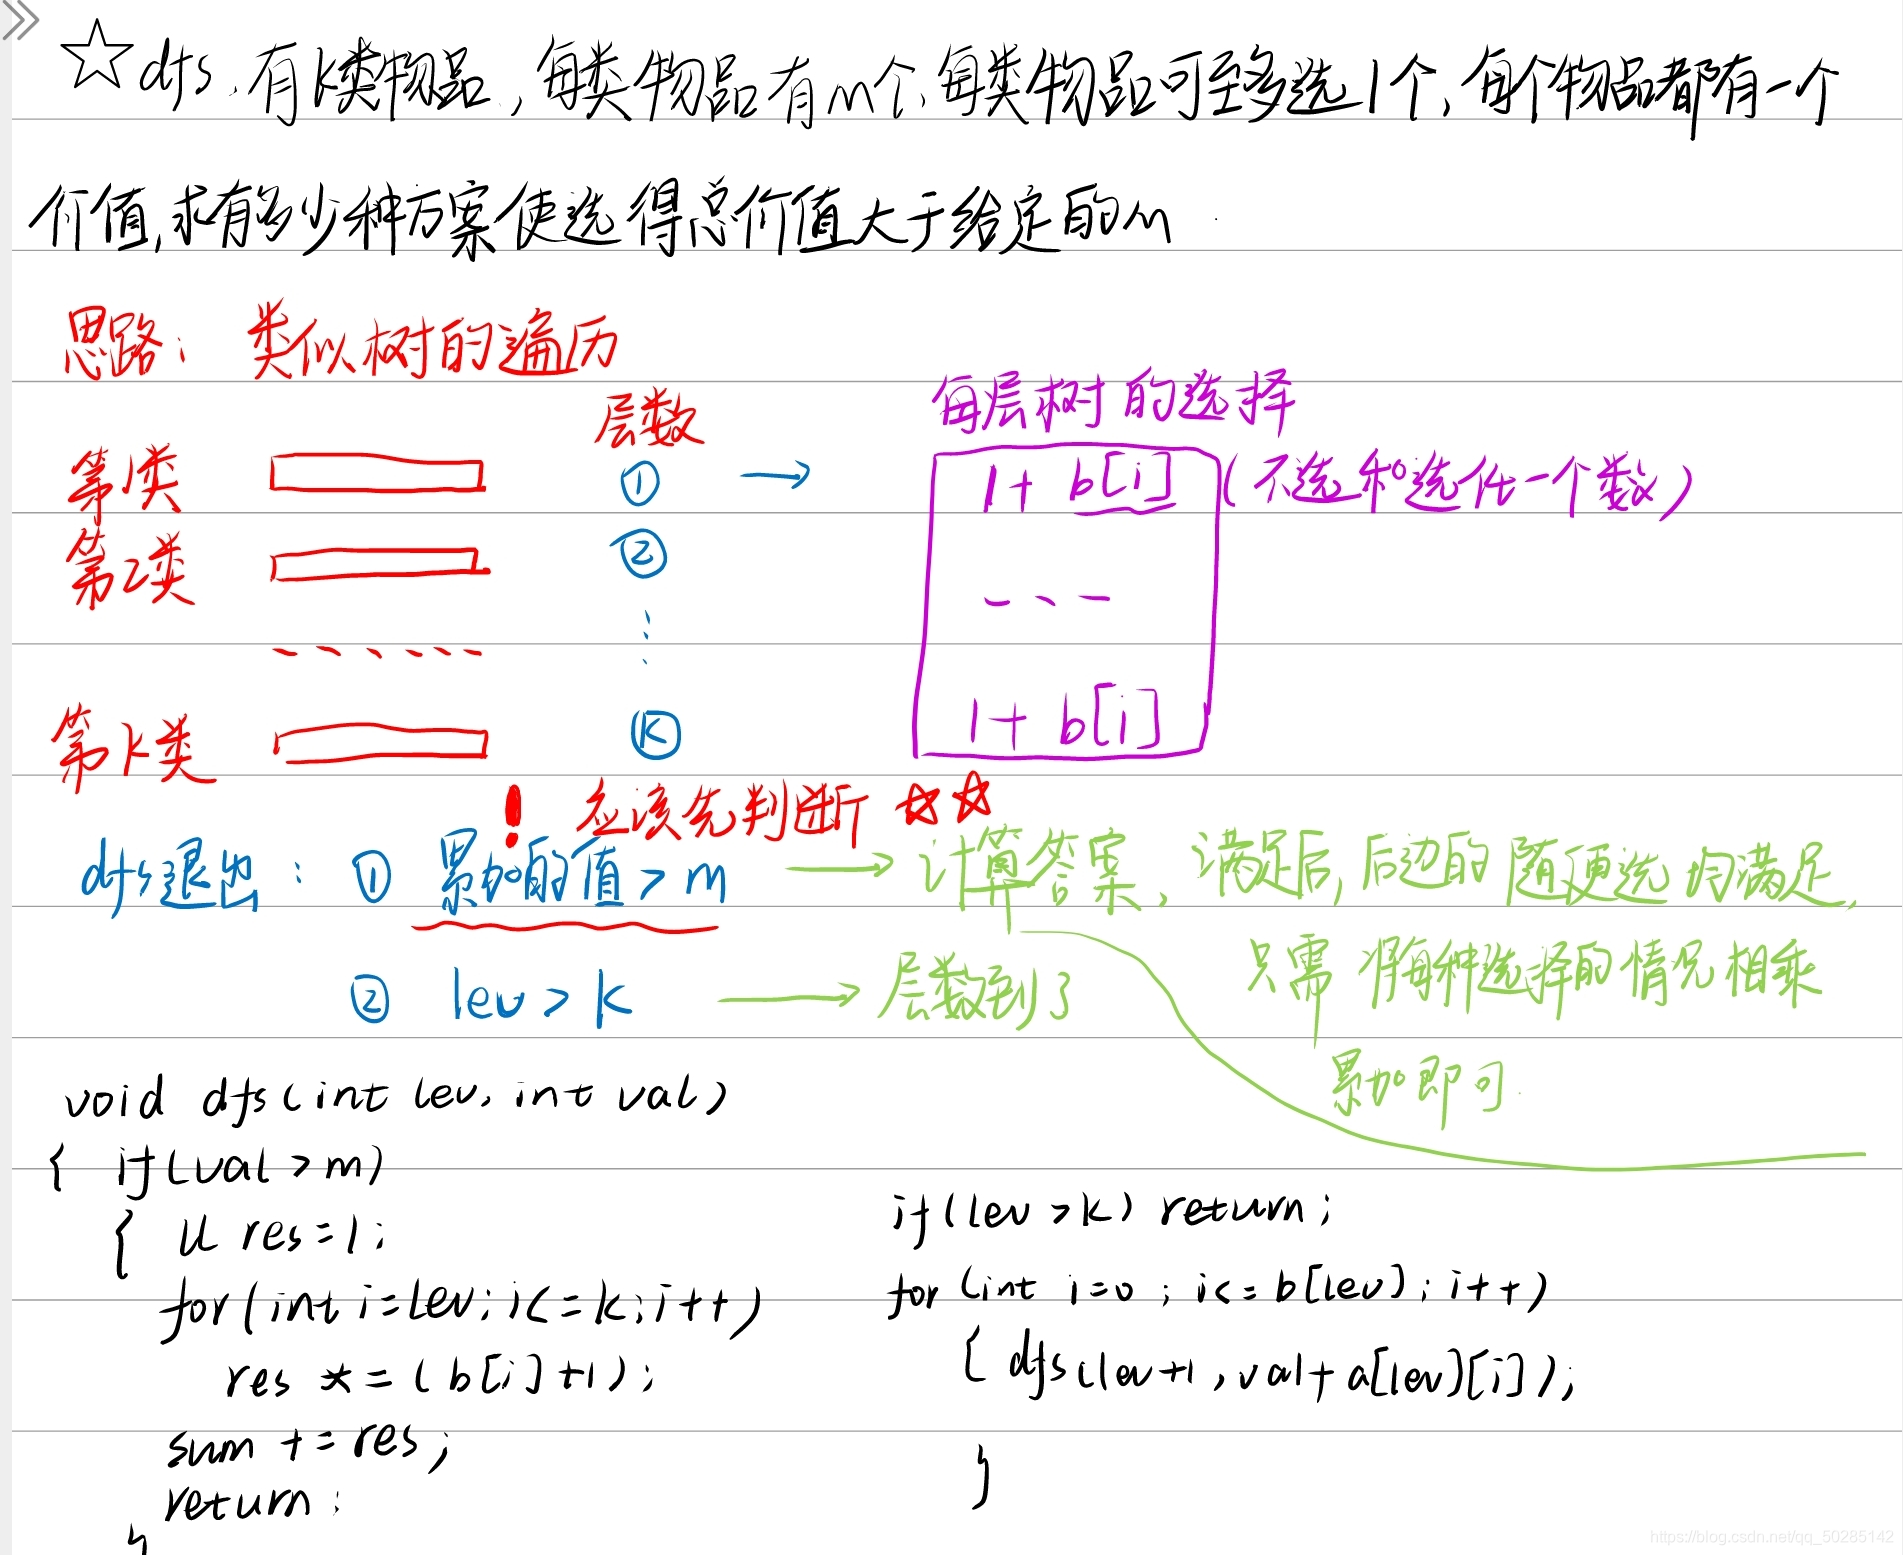 ☆dfs.有k类物品,每类物品有m个,每类物品可至多选1个,每个物品都有一个
价值,求有多少种方案使选得总价值大于给定的m
思路: 类似树的遍历
层数
每层树的选择
第1类 ① → 1+b[i] (不选和选任一个数)
第2类 ②
第k类 Ⓚ 1+b[i]
! 应该先判断 ☆☆
dfs退出: ① 累加的值>m → 计算答案, 满足后,后边的随便选均满足,
只需将每种选择的情况相乘
累加即可.
② lev>k → 层数到了
void dfs(int lev, int val)
{ if(val>m)
{ ll res=1;
for(int i=lev;i<=k;i++)
res *=(b[i]+1);
sum +=res;
return;
}
if(lev>k) return;
for(int i=0;i<=b[lev];i++)
{ dfs(lev+1,val+a[lev][i]);
}
https://blog.csdn.net/qq_50285142